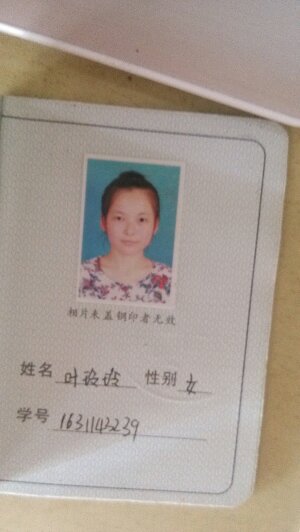 相片未盖钢印者无效
姓名 叶玲玲 性别 女
学号 1631143239